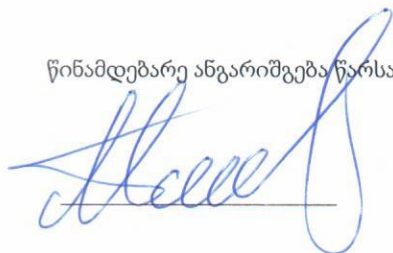 წინამდებარე ანგარიშგება წარსა